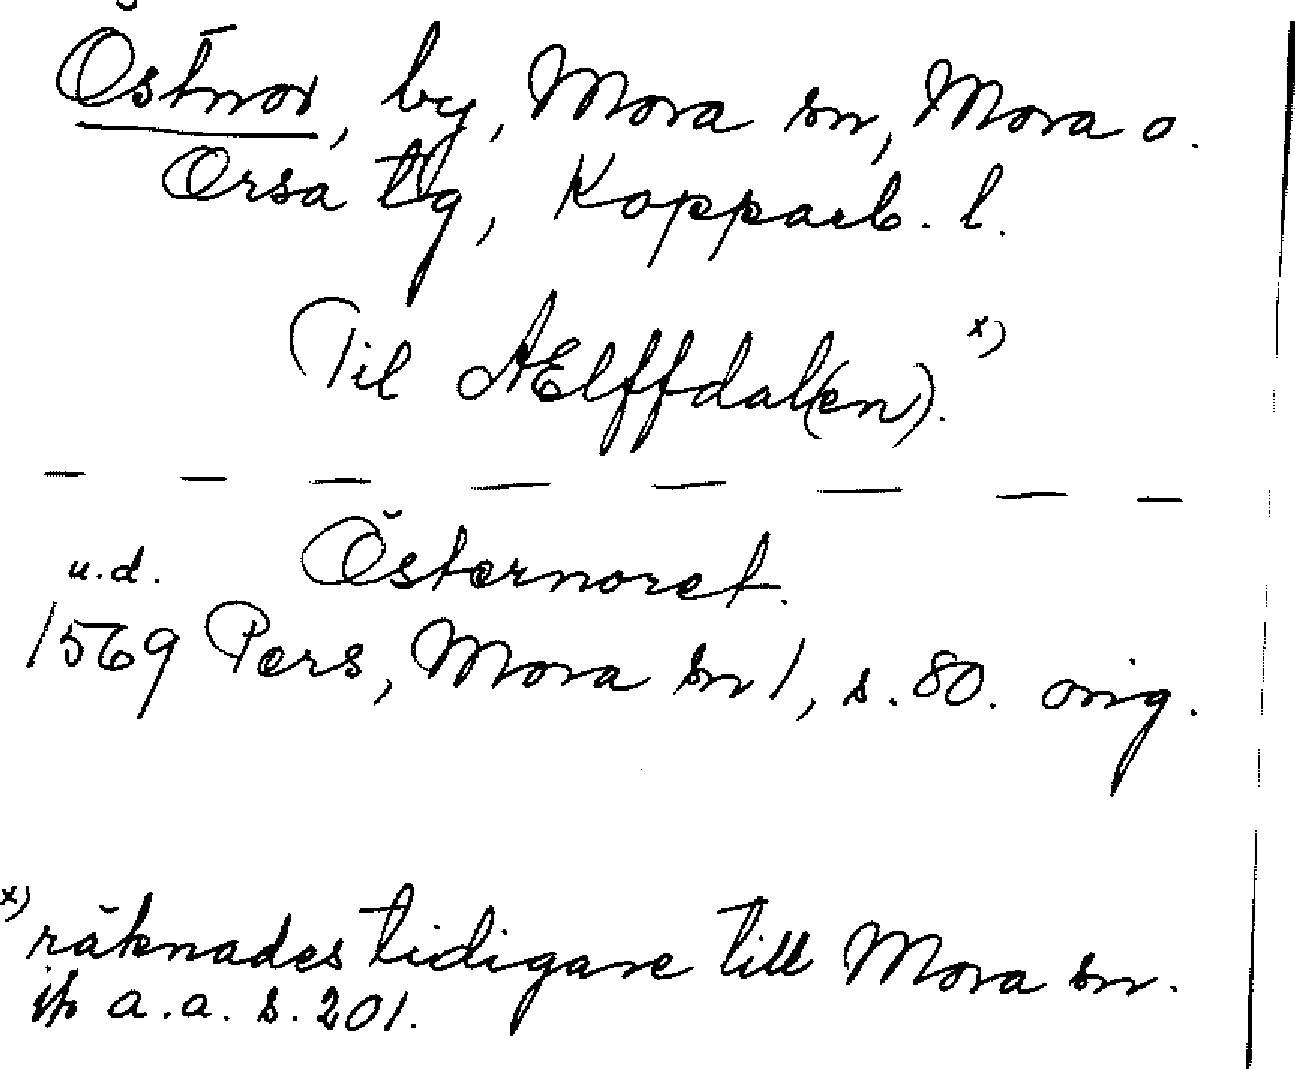 Östnor, by, Mora sn, Mora o.
Orsa tlg, Kopparb. l.
Til AElffdal(en). x)
— — — — — — — —
u.d. Östernoret.
1569 Pers, Mora sn 1, s. 80. orig.
x) räknades tidigare till Mora sn.
jfr a.a. s. 201.